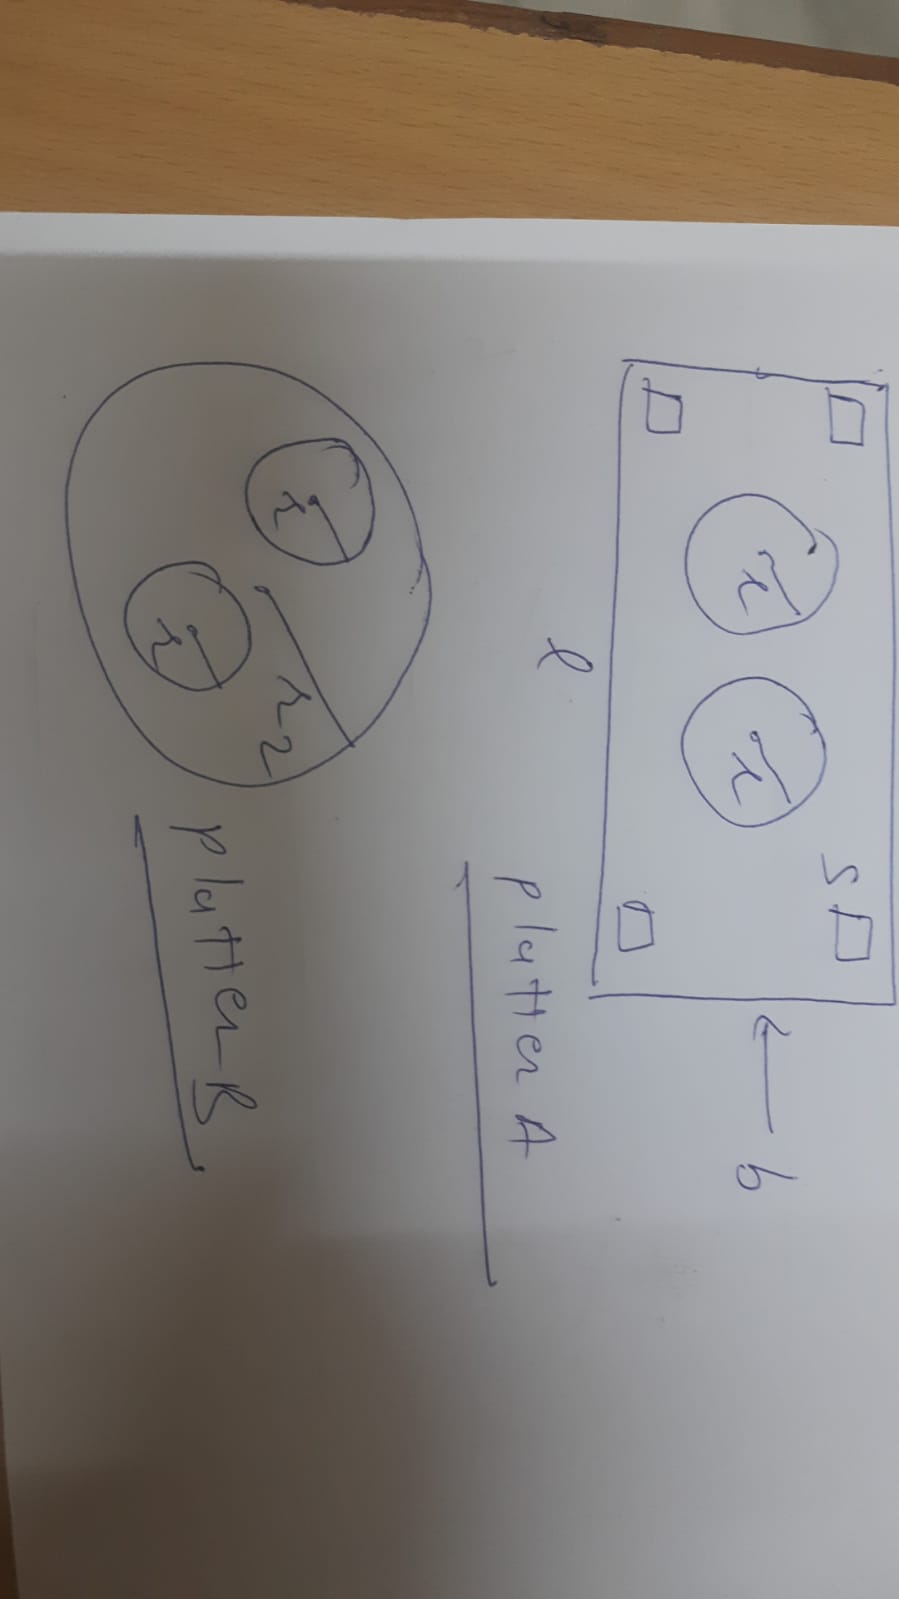 b
s
r
r
l
Platter A
r
r
r2
Platter B